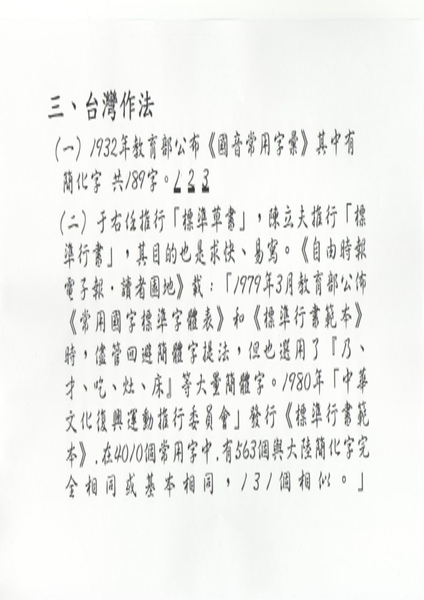 三、台灣作法
(一) 1932年教育部公布《國音常用字彙》其中有
簡化字 共189字。1 2 3
(二) 于右任推行「標準草書」，陳立夫推行「標
準行書」，其目的也是求快、易寫。《自由時報
電子報·讀者園地》載：「1979年3月教育部公佈
《常用國字標準字體表》和《標準行書範本》
時，儘管回避簡體字提法，但也選用了『乃、
才、吃、灶、床』等大量簡體字。1980年「中華
文化復興運動推行委員會」發行《標準行書範
本》，在4010個常用字中，有563個與大陸簡化字完
全相同或基本相同，131個相似。」